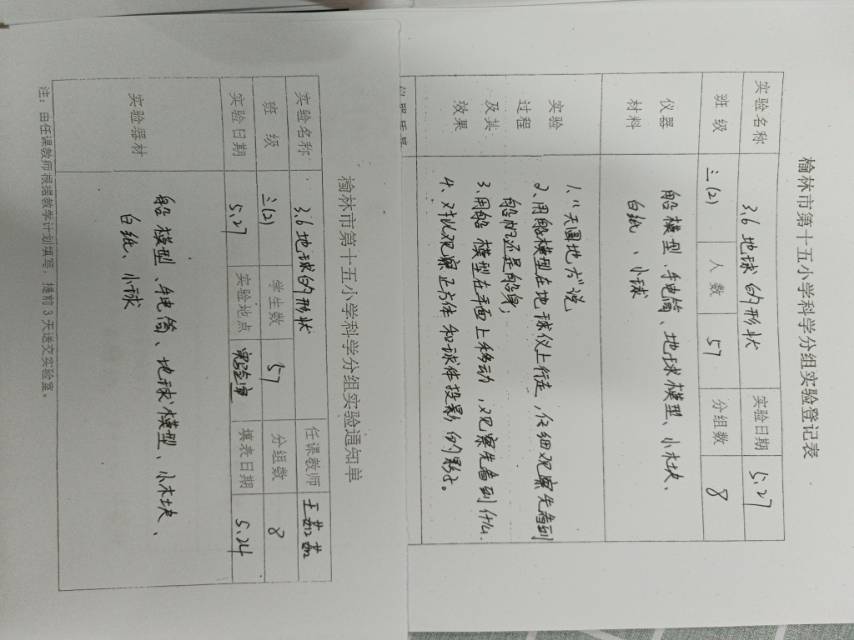 榆林市第十五小学科学分组实验登记表
实验名称 3.6 地球的形状 实验日期 5.27
班 级 三(2) 人 数 57 分组数 8
仪器材料 船模型、手电筒、地球模型、小木块、
白纸、小球
实验过程及其效果 1.“天圆地方”说
2、用船模型在地球仪上行走,仔细观察先看到
船帆还是船身;
3.用船模型在平面上移动,观察先看到什么.
4、对比观察正方体和球体投影的影子。
榆林市第十五小学科学分组实验通知单
实验名称 3.6 地球的形状 任课教师 王茹茹
班 级 三(2) 学生数 57 分组数 8
实验日期 5.27 实验地点 实验室 填表日期 5.24
实验器材 船模型、手电筒、地球模型、小木块、
白纸、小球
注:由任课教师根据教学计划填写,提前 3 天送交实验室。